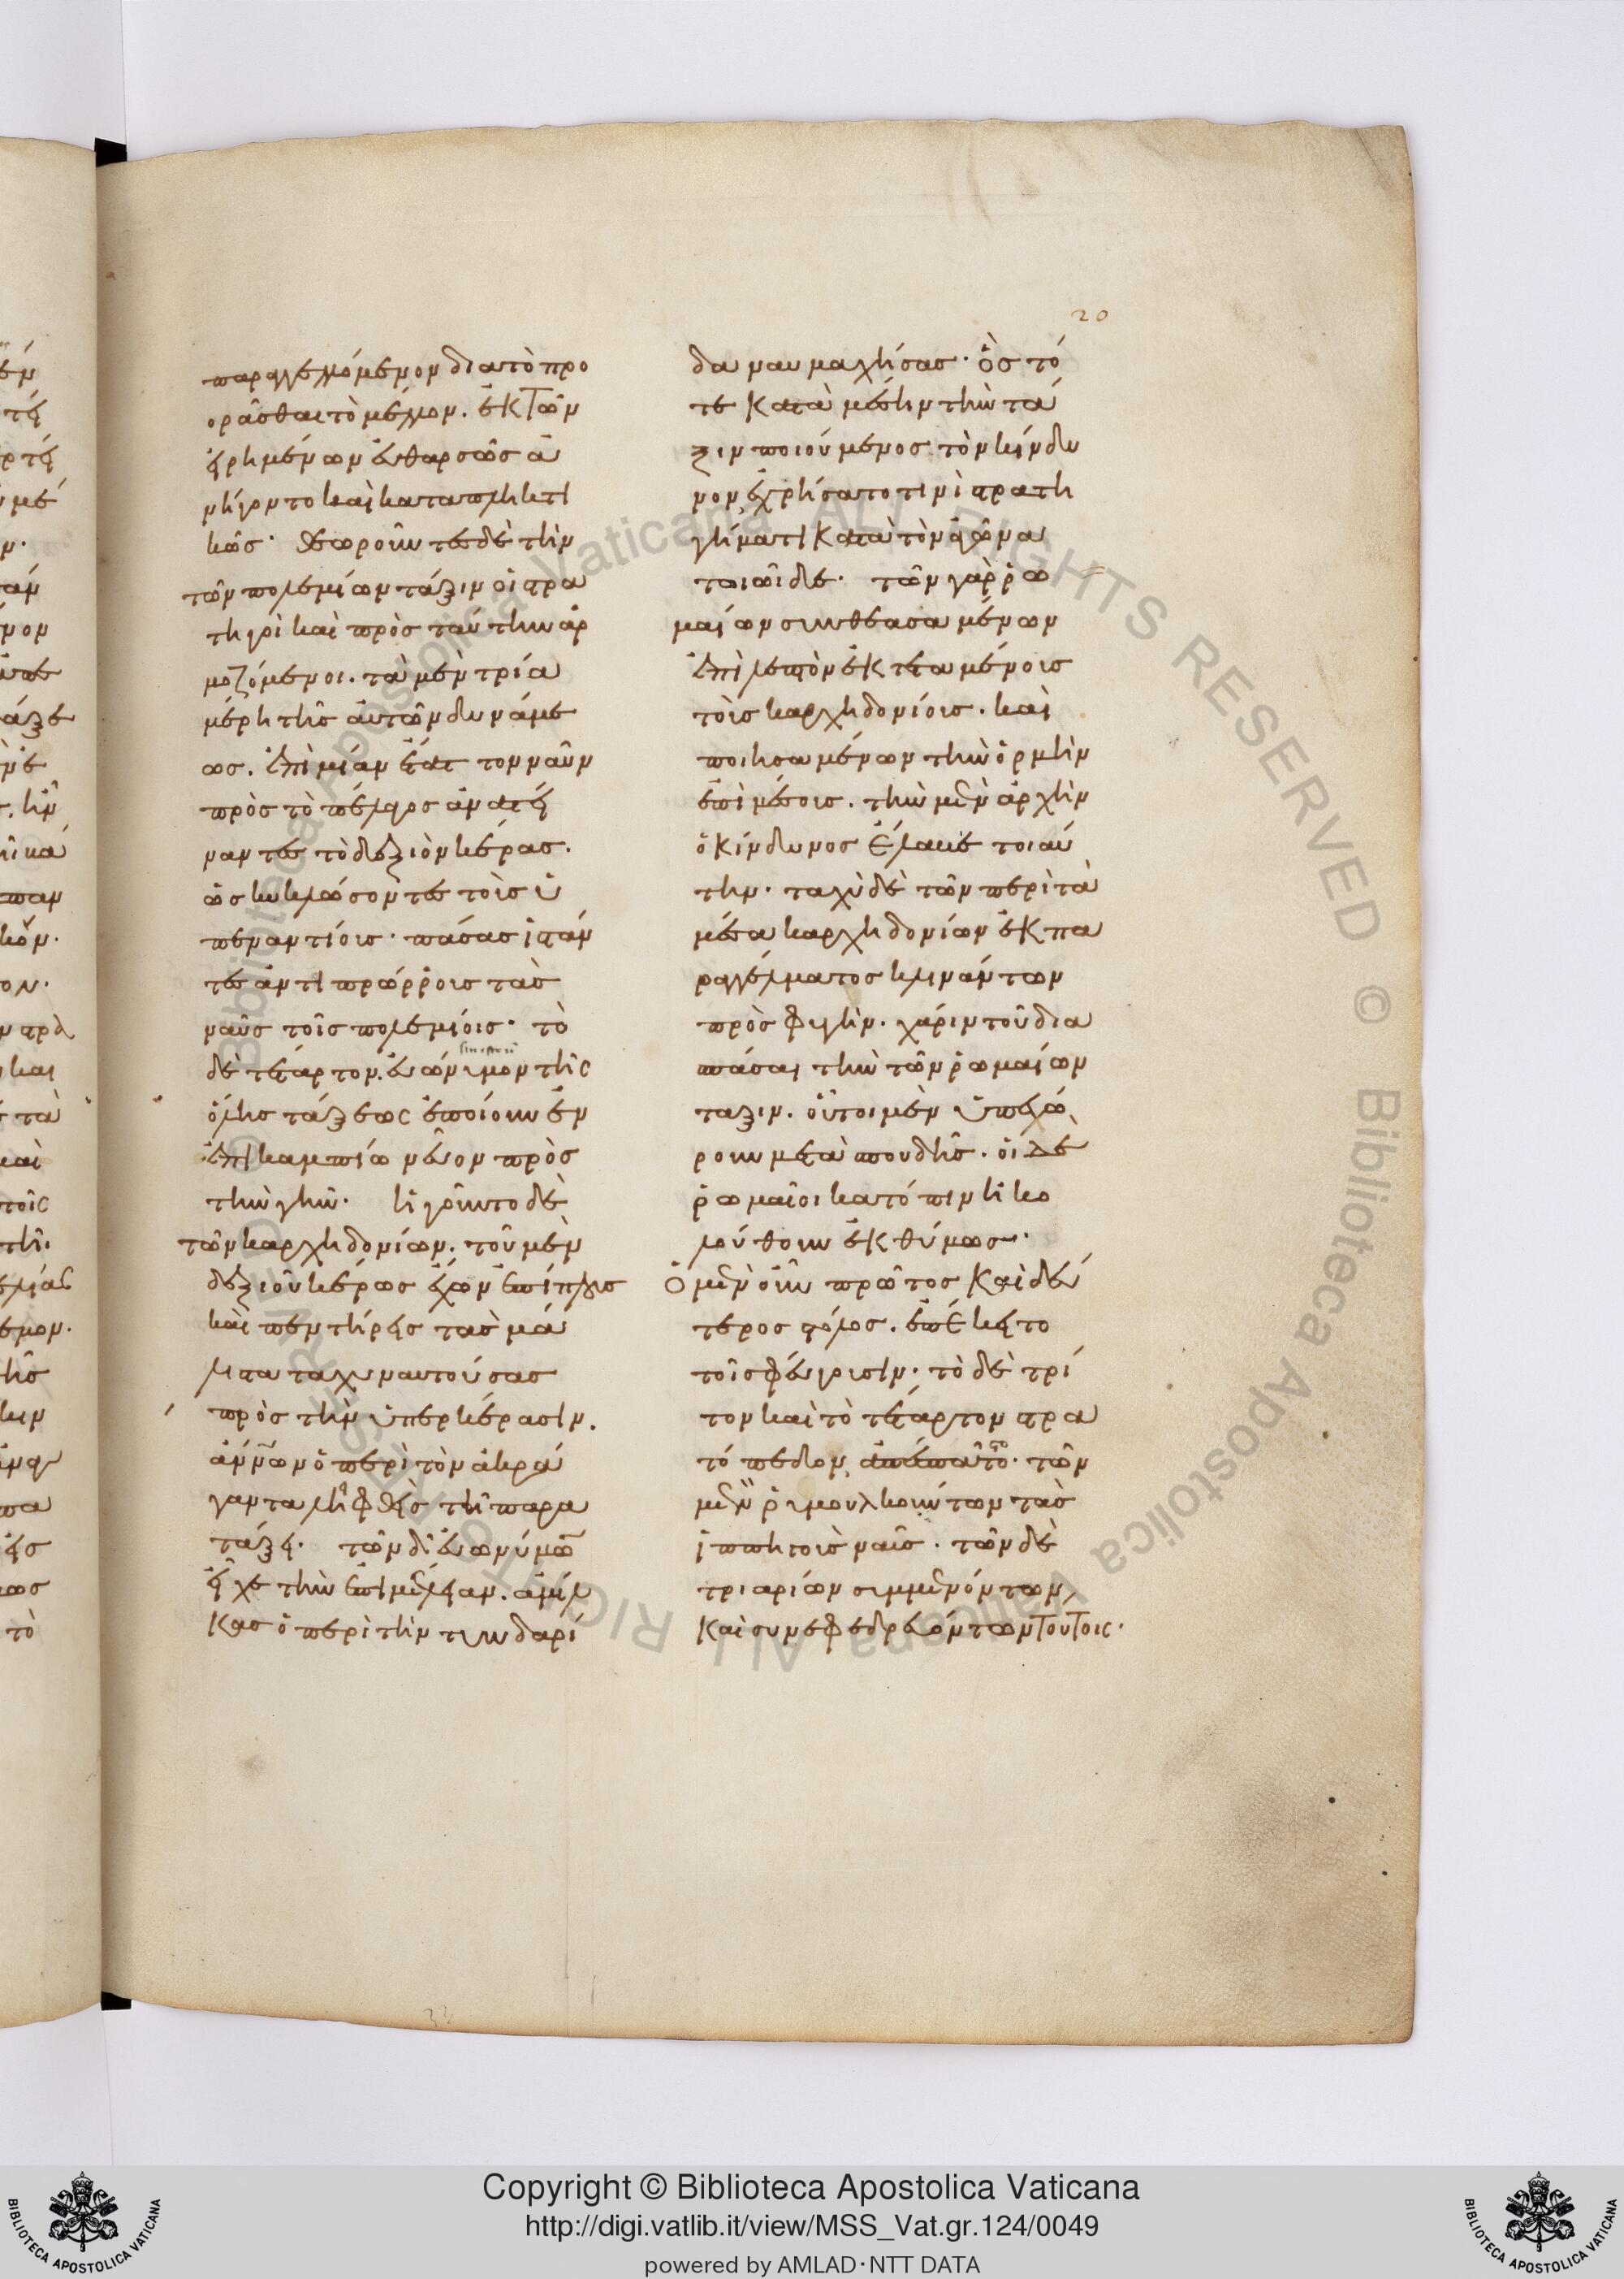 παραγγελλόμενον διατὸ προ
ορᾶσθαι τὸ μέλλον. ἐκ τῶν
εἰρημένων εὐθαρσῶς ἀ
νήγοντο καὶ καταπληκτι
κῶς· θεωροῦντες δὲ τὴν
τῶν πολεμίων τάξιν οἱ στρα
τηγοὶ καὶ πρὸς ταύτην ἁρ
μοζόμενοι. τὰ μὲν τρία
μέρη τῆς αὐτῶν δυνάμε
ως. ἐπὶ μίαν ἔταττον ναῦν
πρὸς τὸ πέλαγος ἀνατεί
ναντες τὸ δεξιὸν κέρας.
ὡς κυκλώσοντες τοῖς ὑ
πεναντίοις· πάσας ἱστάν
τες ἀντιπρώρροις τὰς
ναῦς τοῖς πολεμίοις· τὸ
δὲ τέταρτον. εὐώνυμον τῆς
ὅλης τάξεως ἐποίουν ἐν
ἐπικαμπίω νεῦον πρὸς
τὴν γῆν. ἡγοῦντο δὲ
τῶν καρχηδονίων. τοῦ μὲν
δεξιοῦ κέρως ἔχων ἐπίπλοις
καὶ πεντήρεις τὰς μά
λιστα ταχυναυτούσας
πρὸς τὴν ὑπερκέρασιν.
ἄννων ὁ περὶ τὸν ἀκρά
γαντα ληφθεὶς τῆ παρα
τάξει. τῶν δ' εὐωνύμων
εἶχε τὴν ἐπιμέλειαν. ἀμίλ
κας ὁ περὶ τὴν τυνδαρί
20
δα ναυμαχήσας· ὃς τό
τε κατὰ μέσην τὴν τά
ξιν ποιούμενος τὸν κίνδυ
νον, ἐχρήσατό τινι στρατη
γήματι κατὰ τὸν ἀγῶνα
τοιῶιδε. τῶν γὰρ ῥω
μαίων συνθεασαμένων
ἐπὶ λεπτὸν ἐκτεταμένοις
τοῖς καρχηδονίοις. καὶ
ποιησαμένων τὴν ὁρμὴν
ἐπὶ μέσοις. τὴν μὲν ἀρχὴν
ὁ κίνδυνος ἔλαβε τοιαύ
την. ταχὺ δὲ τῶν περὶ τὰ
μέσα καρχηδονίων ἐκ πα
ραγγέλματος κλινάντων
πρὸς φυγὴν. χάριν τοῦ δια
σπάσαι τὴν τῶν ῥωμαίων
ταξιν. οὗτοι μὲν ὑπεχώ
ρουν μετὰ σπουδῆς. οἱ δὲ
ῥωμαῖοι κατόπιν ἠκο
λούθουν ἐκθύμως.
Ὁ μὲν οὖν πρῶτος καὶ δεύ
τερος στόλος. ἐπέκειτο
τοῖς φεύγουσιν. τὸ δὲ τρί
τον καὶ τὸ τέταρτον στρα
τόπεδον, ἀπεσπᾶτο. τῶν
μὲν ῥυμουλκούντων τὰς
ἱππηγοὺς ναῦς. τῶν δὲ
τριαρίων συμμενόντων
καὶ συνεφεδρευόντων τούτοις.
Copyright © Biblioteca Apostolica Vaticana
http://digi.vatlib.it/view/MSS_Vat.gr.124/0049
powered by AMLAD·NTT DATA